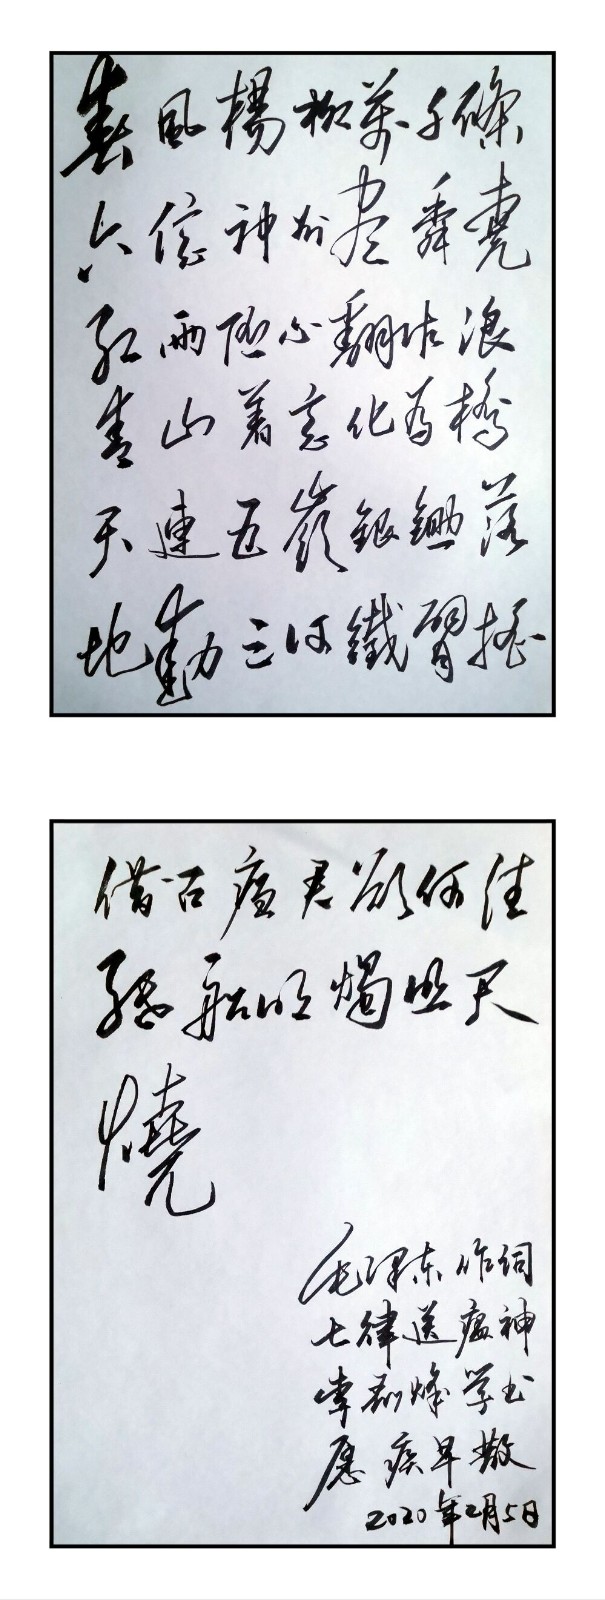 春風楊柳萬千條
六億神州尽舜堯
紅雨随心翻作浪
青山着意化為橋
天連五嶺銀鋤落
地動三河鐵臂搖
借问瘟君欲何往
纸船明燭照天
燒
毛泽东作词
七律送瘟神
李烽学书
愿疾早散
2020年2月5日